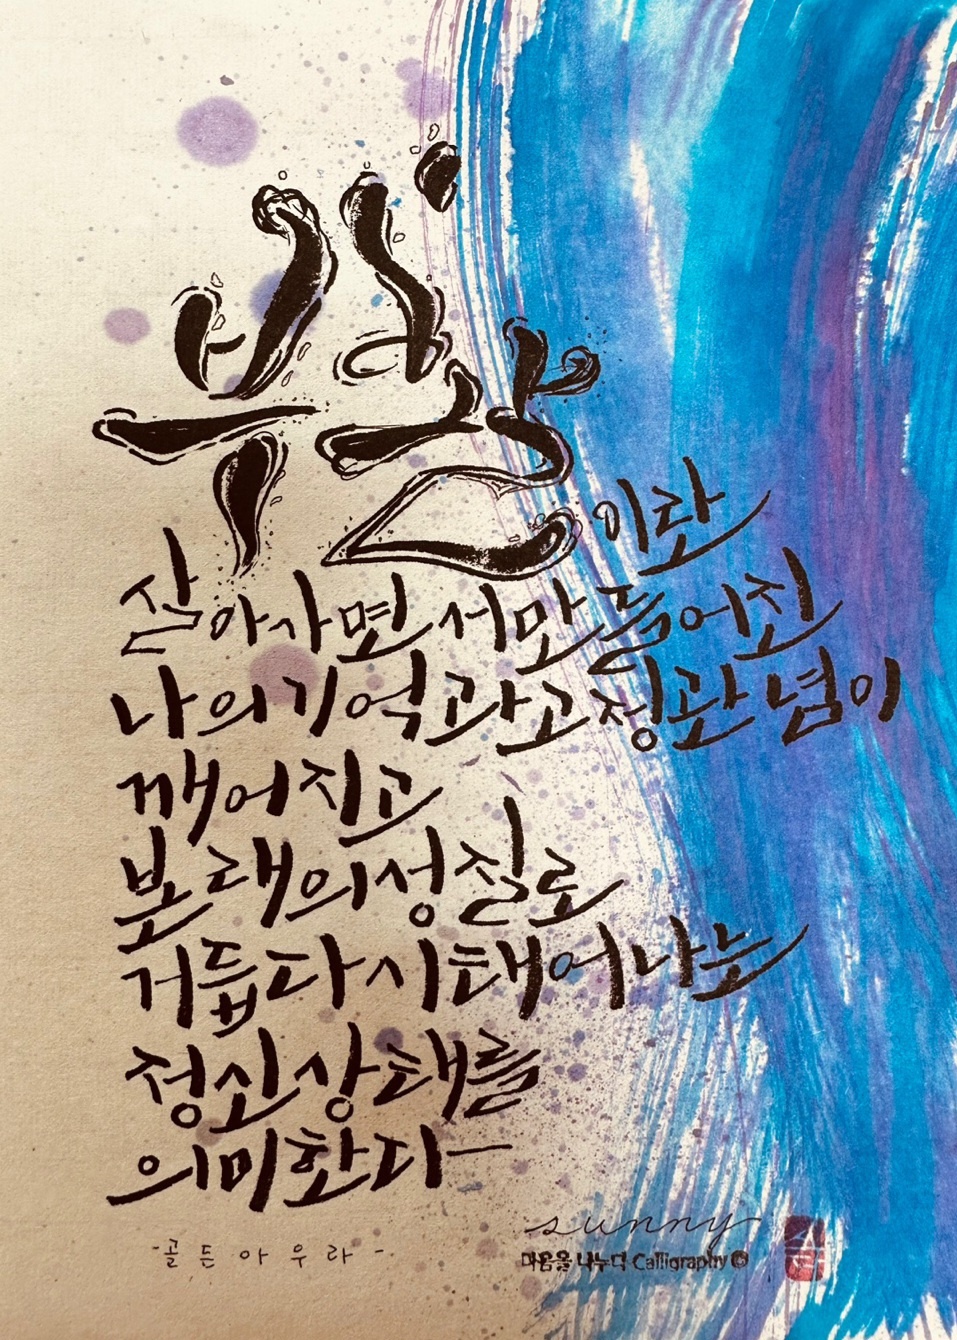 부활이란
살아가면서 만들어진
나의 기억과 고정관념이
깨어지고
본래의 성질로
거듭 다시 태어나는
정신상태를
의미한다
-골든아우라-
sunny
마음을 나누다 Calligraphy ©